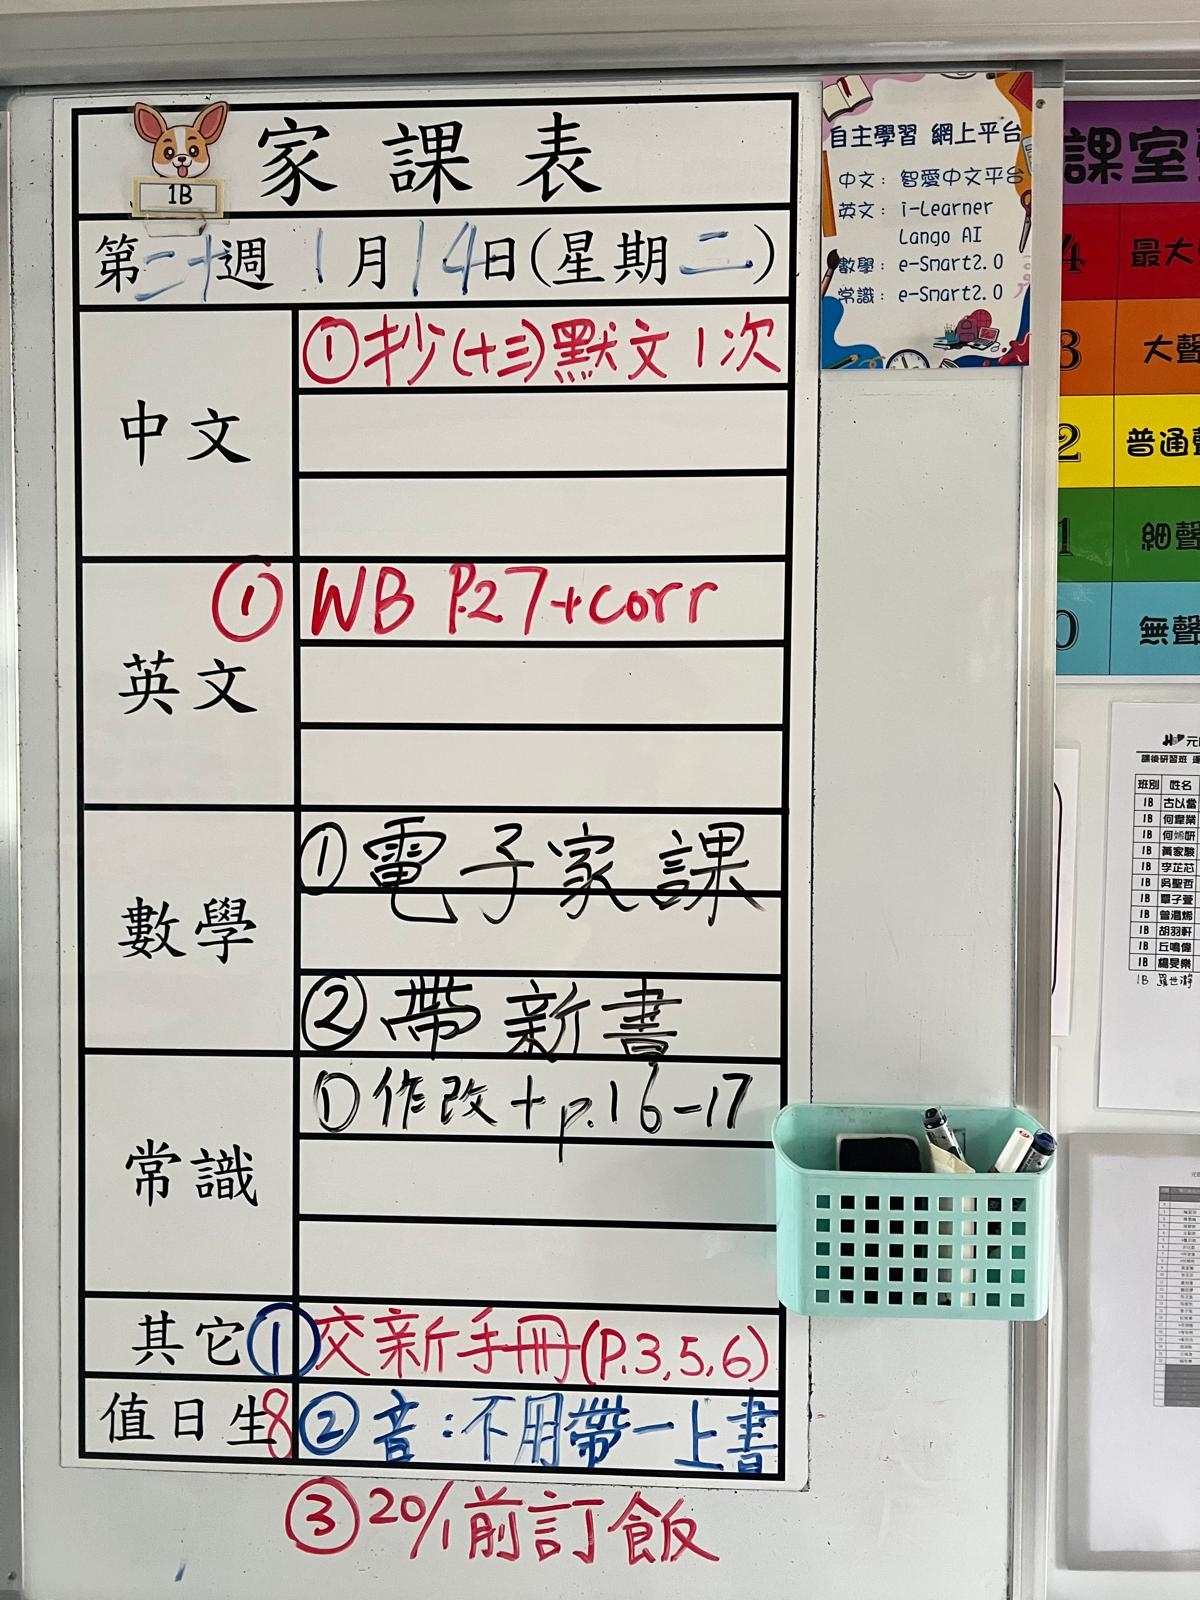 家課表
1B
第二十週 1月14日(星期二)
中文
①抄(十三)默文1次
英文
① WB P.27+corr
數學
①電子家課
②帶新書
常識
①作改+p.16-17
其它
①交新手冊(P.3,5,6)
值日生 8
②音:不用帶一上書
③20/1前訂飯
自主學習 網上平台
中文: 智愛中文平台
英文: i-Learner
Lango AI
數學: e-Smart2.0
常識: e-Smart2.0
課室
4 最大
3 大聲
2 普通
1 細聲
0 無聲
課後研習班
班別 姓名
1B 古以當
1B 何煒榮
1B 何嫣研
1B 黃家駿
1B 李芷芯
1B 吳聖哲
1B 覃子萱
1B 胡羽軒
1B 丘鳴偉
1B 楊旻樂